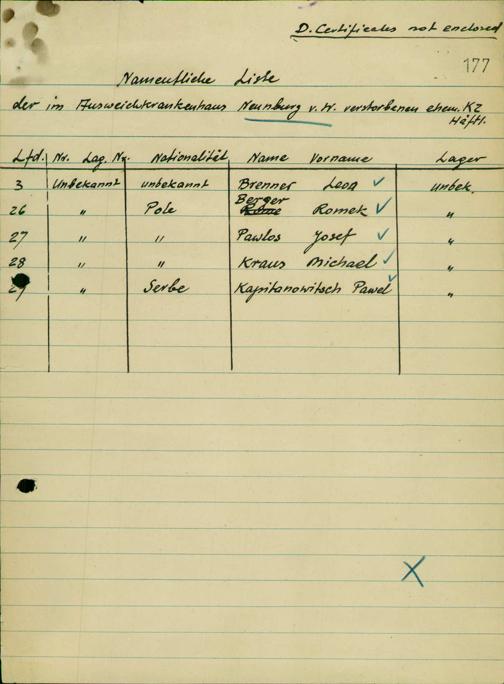 D. Certificates not enclosed
177
Namentliche Liste
der im Ausweichkrankenhaus Neunburg v. W. verstorbenen ehem. KZ
Häftl.
Lfd. Nr. Lag. Nr. Nationalität Name Vorname Lager
3 Unbekannt unbekannt Brenner Leon unbek.
Berger
26 " Pole Romek "
27 " " Pawlos Josef "
28 " " Kraus Michael "
29 " Serbe Kapitanowitsch Pawel "